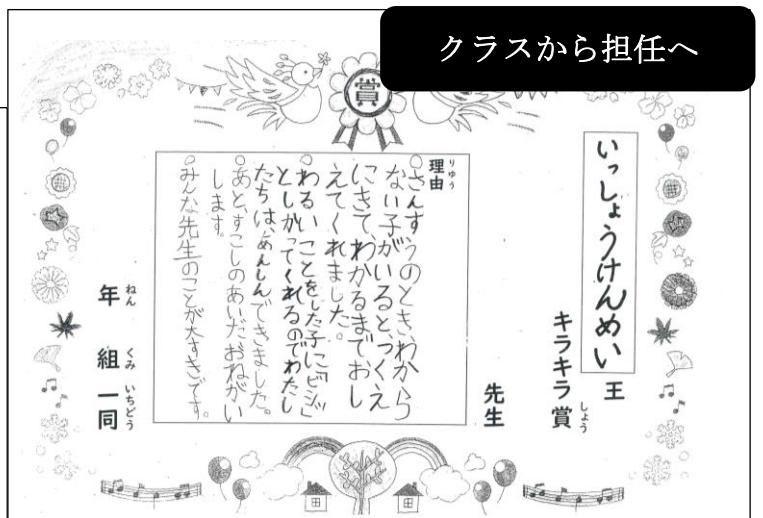 クラスから担任へ
賞
いっしょうけんめい王
キラキラ賞
しょう
先生
理由
りゆう
○さんすうのときわから
ない子がいるとつくえ
にきて、わかるまでおし
えてくれました。
○わるいことをした子に「ビシッ」
としかってくれるのでわたし
たちは、あんしんできました。
○あと、すこしのあいだおねがい
します。
○みんな先生のことが大すきです。
年 組 一同
ねん くみ いちどう